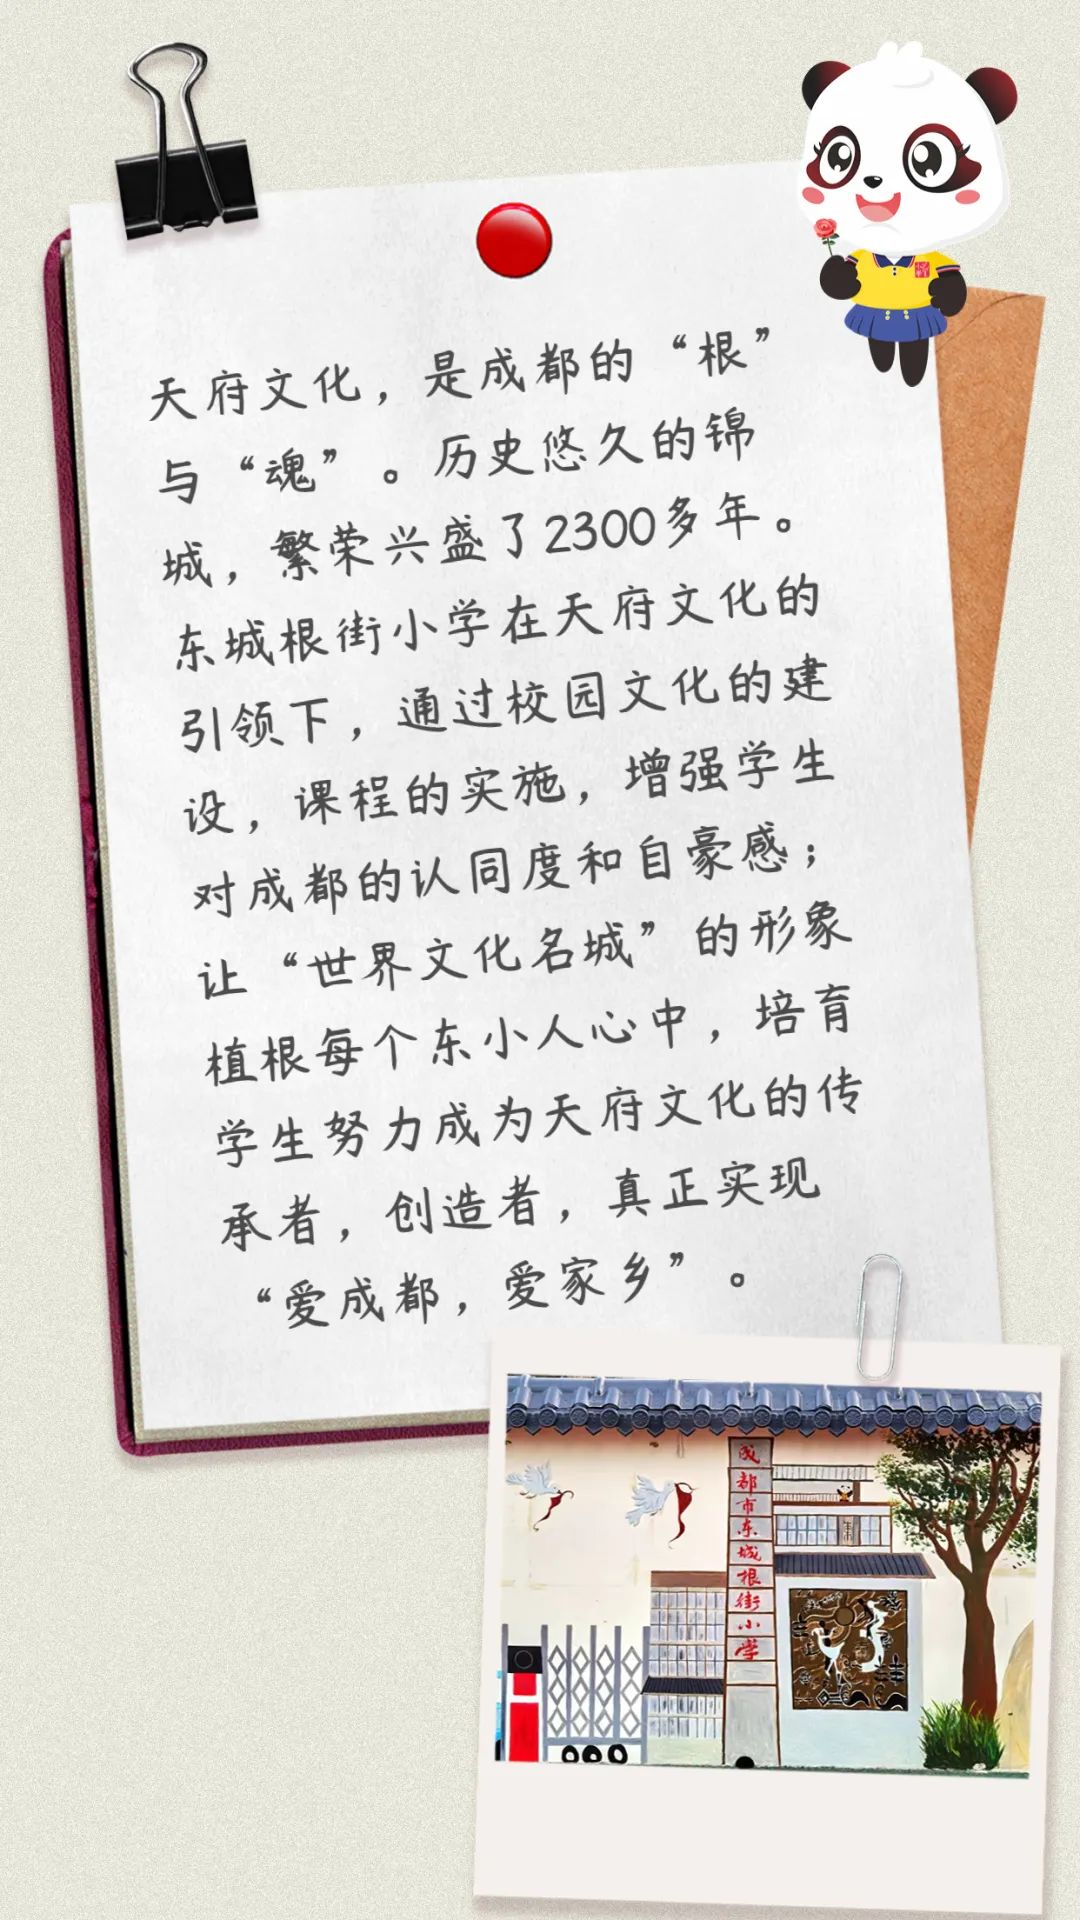 天府文化，是成都的“根”
与“魂”。历史悠久的锦
城，繁荣兴盛了2300多年。
东城根街小学在天府文化的
引领下，通过校园文化的建
设，课程的实施，增强学生
对成都的认同度和自豪感；
让“世界文化名城”的形象
植根每个东小人心中，培育
学生努力成为天府文化的传
承者，创造者，真正实现
“爱成都，爱家乡”。
成都市东城根街小学